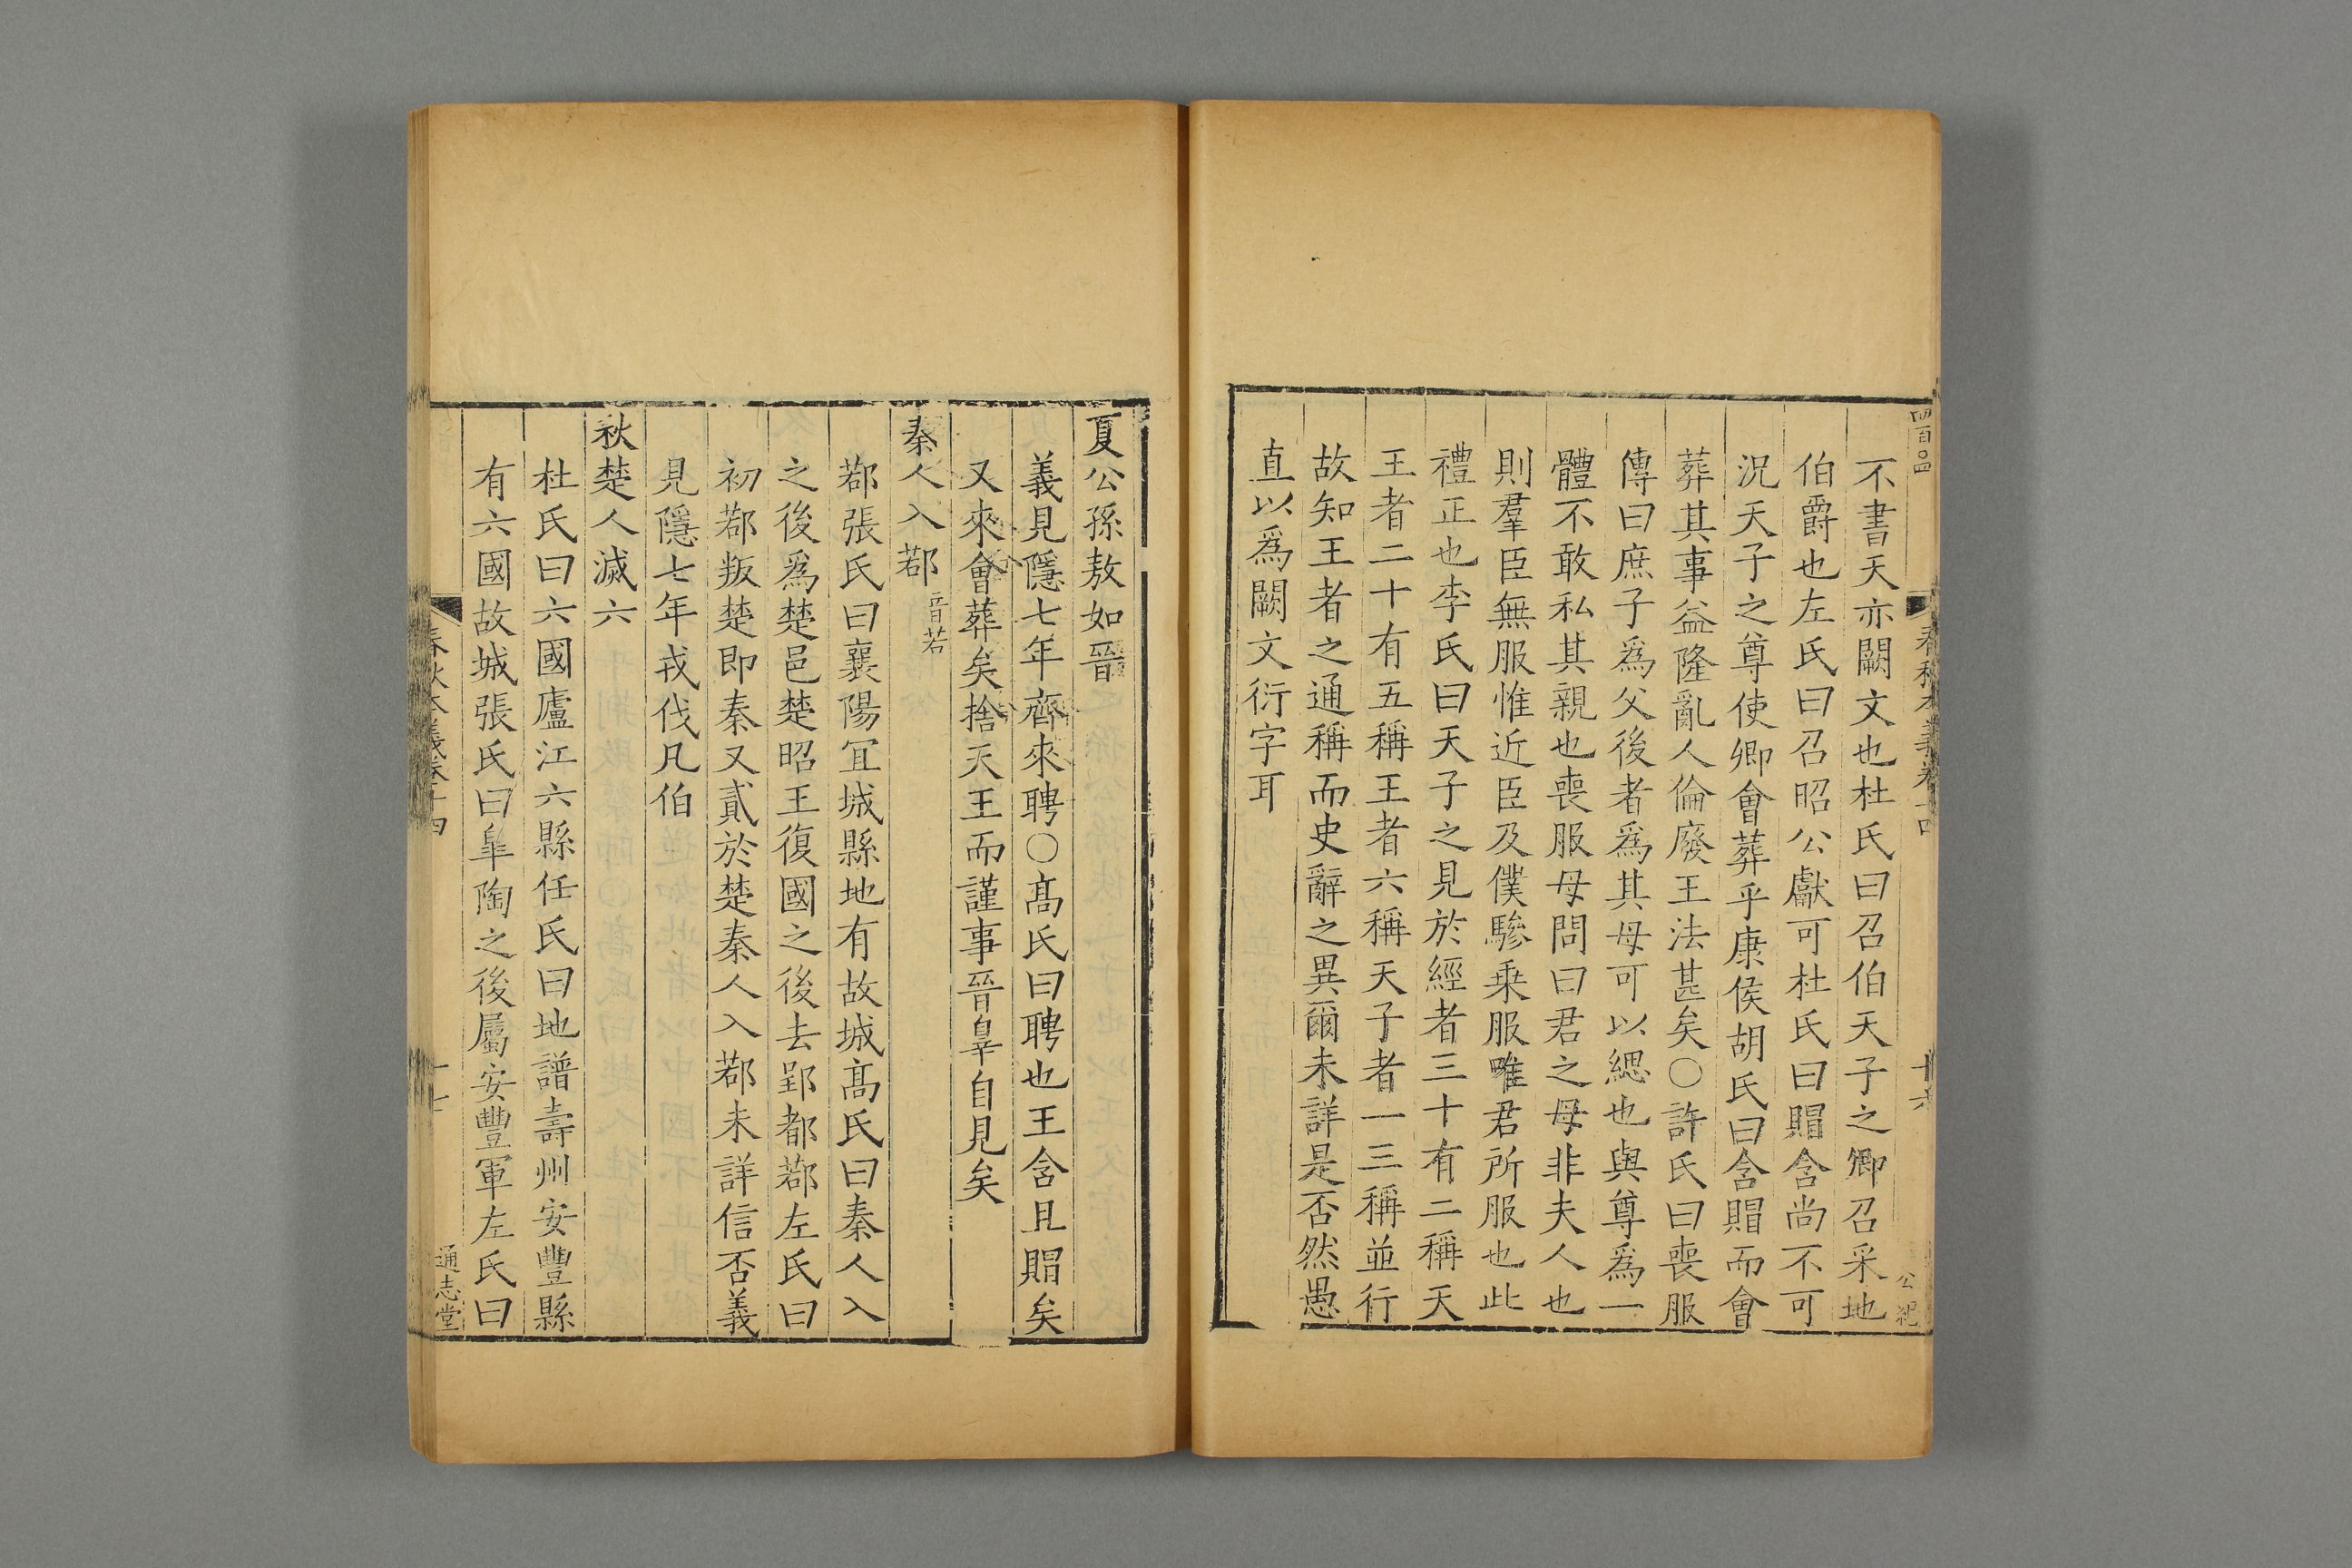 四百四
春秋本義卷十四
十六
公祀
不書天亦闕文也杜氏曰召伯天子之卿召采地
伯爵也左氏曰召昭公獻可杜氏曰賵含尚不可
況天子之尊使卿會葬乎康侯胡氏曰含賵而會
葬其事益隆亂人倫廢王法甚矣○許氏曰喪服
傳曰庶子爲父後者爲其母可以緦也與尊爲一
體不敢私其親也喪服母問曰君之母非夫人也
則羣臣無服惟近臣及僕驂乗服唯君所服也此
禮正也李氏曰天子之見於經者三十有二稱天
王者二十有五稱王者六稱天子者一三稱並行
故知王者之通稱而史辭之異爾未詳是否然愚
直以爲闕文衍字耳
夏公孫敖如晉
義見隱七年齊來聘○髙氏曰聘也王含且賵矣
又來會葬矣捨天王而謹事晉辠自見矣
秦人入鄀音若
鄀張氏曰襄陽冝城縣地有故城髙氏曰秦人入
之後爲楚邑楚昭王復國之後去郢都鄀左氏曰
初鄀叛楚即秦又貳於楚秦人入鄀未詳信否義
見隱七年戎伐凡伯
秋楚人滅六
杜氏曰六國廬江六縣任氏曰地譜壽州安豐縣
有六國故城張氏曰臯陶之後屬安豐軍左氏曰
春秋本義卷十四
十七
通志堂